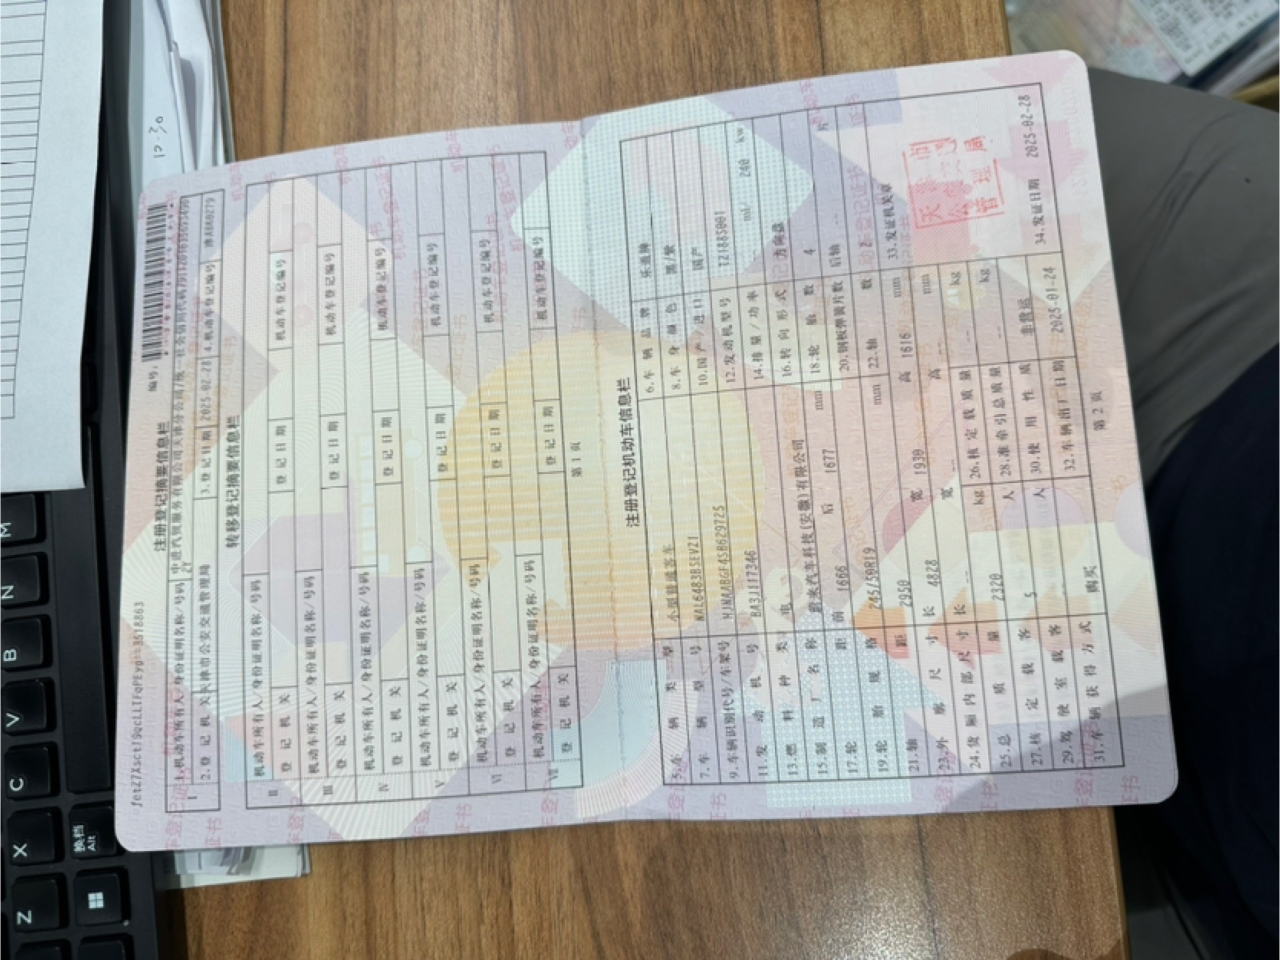 编号:
注册登记摘要信息栏
I 1.机动车所有人/身份证明名称/号码
2.登记机关 天津市公安交通管理局 3.登记日期 2025-02-28 4.机动车登记编号
转移登记摘要信息栏
II 机动车所有人/身份证明名称/号码
登记机关 登记日期 机动车登记编号
III 机动车所有人/身份证明名称/号码
登记机关 登记日期 机动车登记编号
IV 机动车所有人/身份证明名称/号码
登记机关 登记日期 机动车登记编号
V 机动车所有人/身份证明名称/号码
登记机关 登记日期 机动车登记编号
VI 机动车所有人/身份证明名称/号码
登记机关 登记日期 机动车登记编号
VII 机动车所有人/身份证明名称/号码
登记机关 登记日期 机动车登记编号
第1页
注册登记机动车信息栏
5.车辆类型 小型普通客车 6.车辆品牌 乐道牌
7.车辆型号 NAL6483BSEVZ1 8.车身颜色 黑/紫
9.车辆识别代号/车架号 10.国产/进口 国产
11.发动机号 BA3J117346 12.发动机型号 TZ188S001
13.燃料种类 电 14.排量/功率 -- ml/ 240 kw
15.制造厂名称 蔚来汽车科技(安徽)有限公司 16.转向形式 方向盘
17.轮距 前 1666 后 1677 mm 18.轮胎数 4
19.轮胎规格 245/50R19 20.钢板弹簧片数 后轴 -- 片
21.轴距 2950 mm 22.轴数 2
23.外廓尺寸 长 4828 宽 1930 高 1616 mm 33.发证机关章
24.货厢内部尺寸 长 -- 宽 -- 高 -- mm
25.总质量 2320 kg 26.核定载质量 -- kg
27.核定载客 5 人 28.准牵引总质量 -- kg
29.驾驶室载客 -- 人 30.使用性质 非营运
31.车辆获得方式 购买 32.车辆出厂日期 2025-01-24 34.发证日期 2025-02-28
第2页
M
N
B
V
C
X
Z
换档
Alt